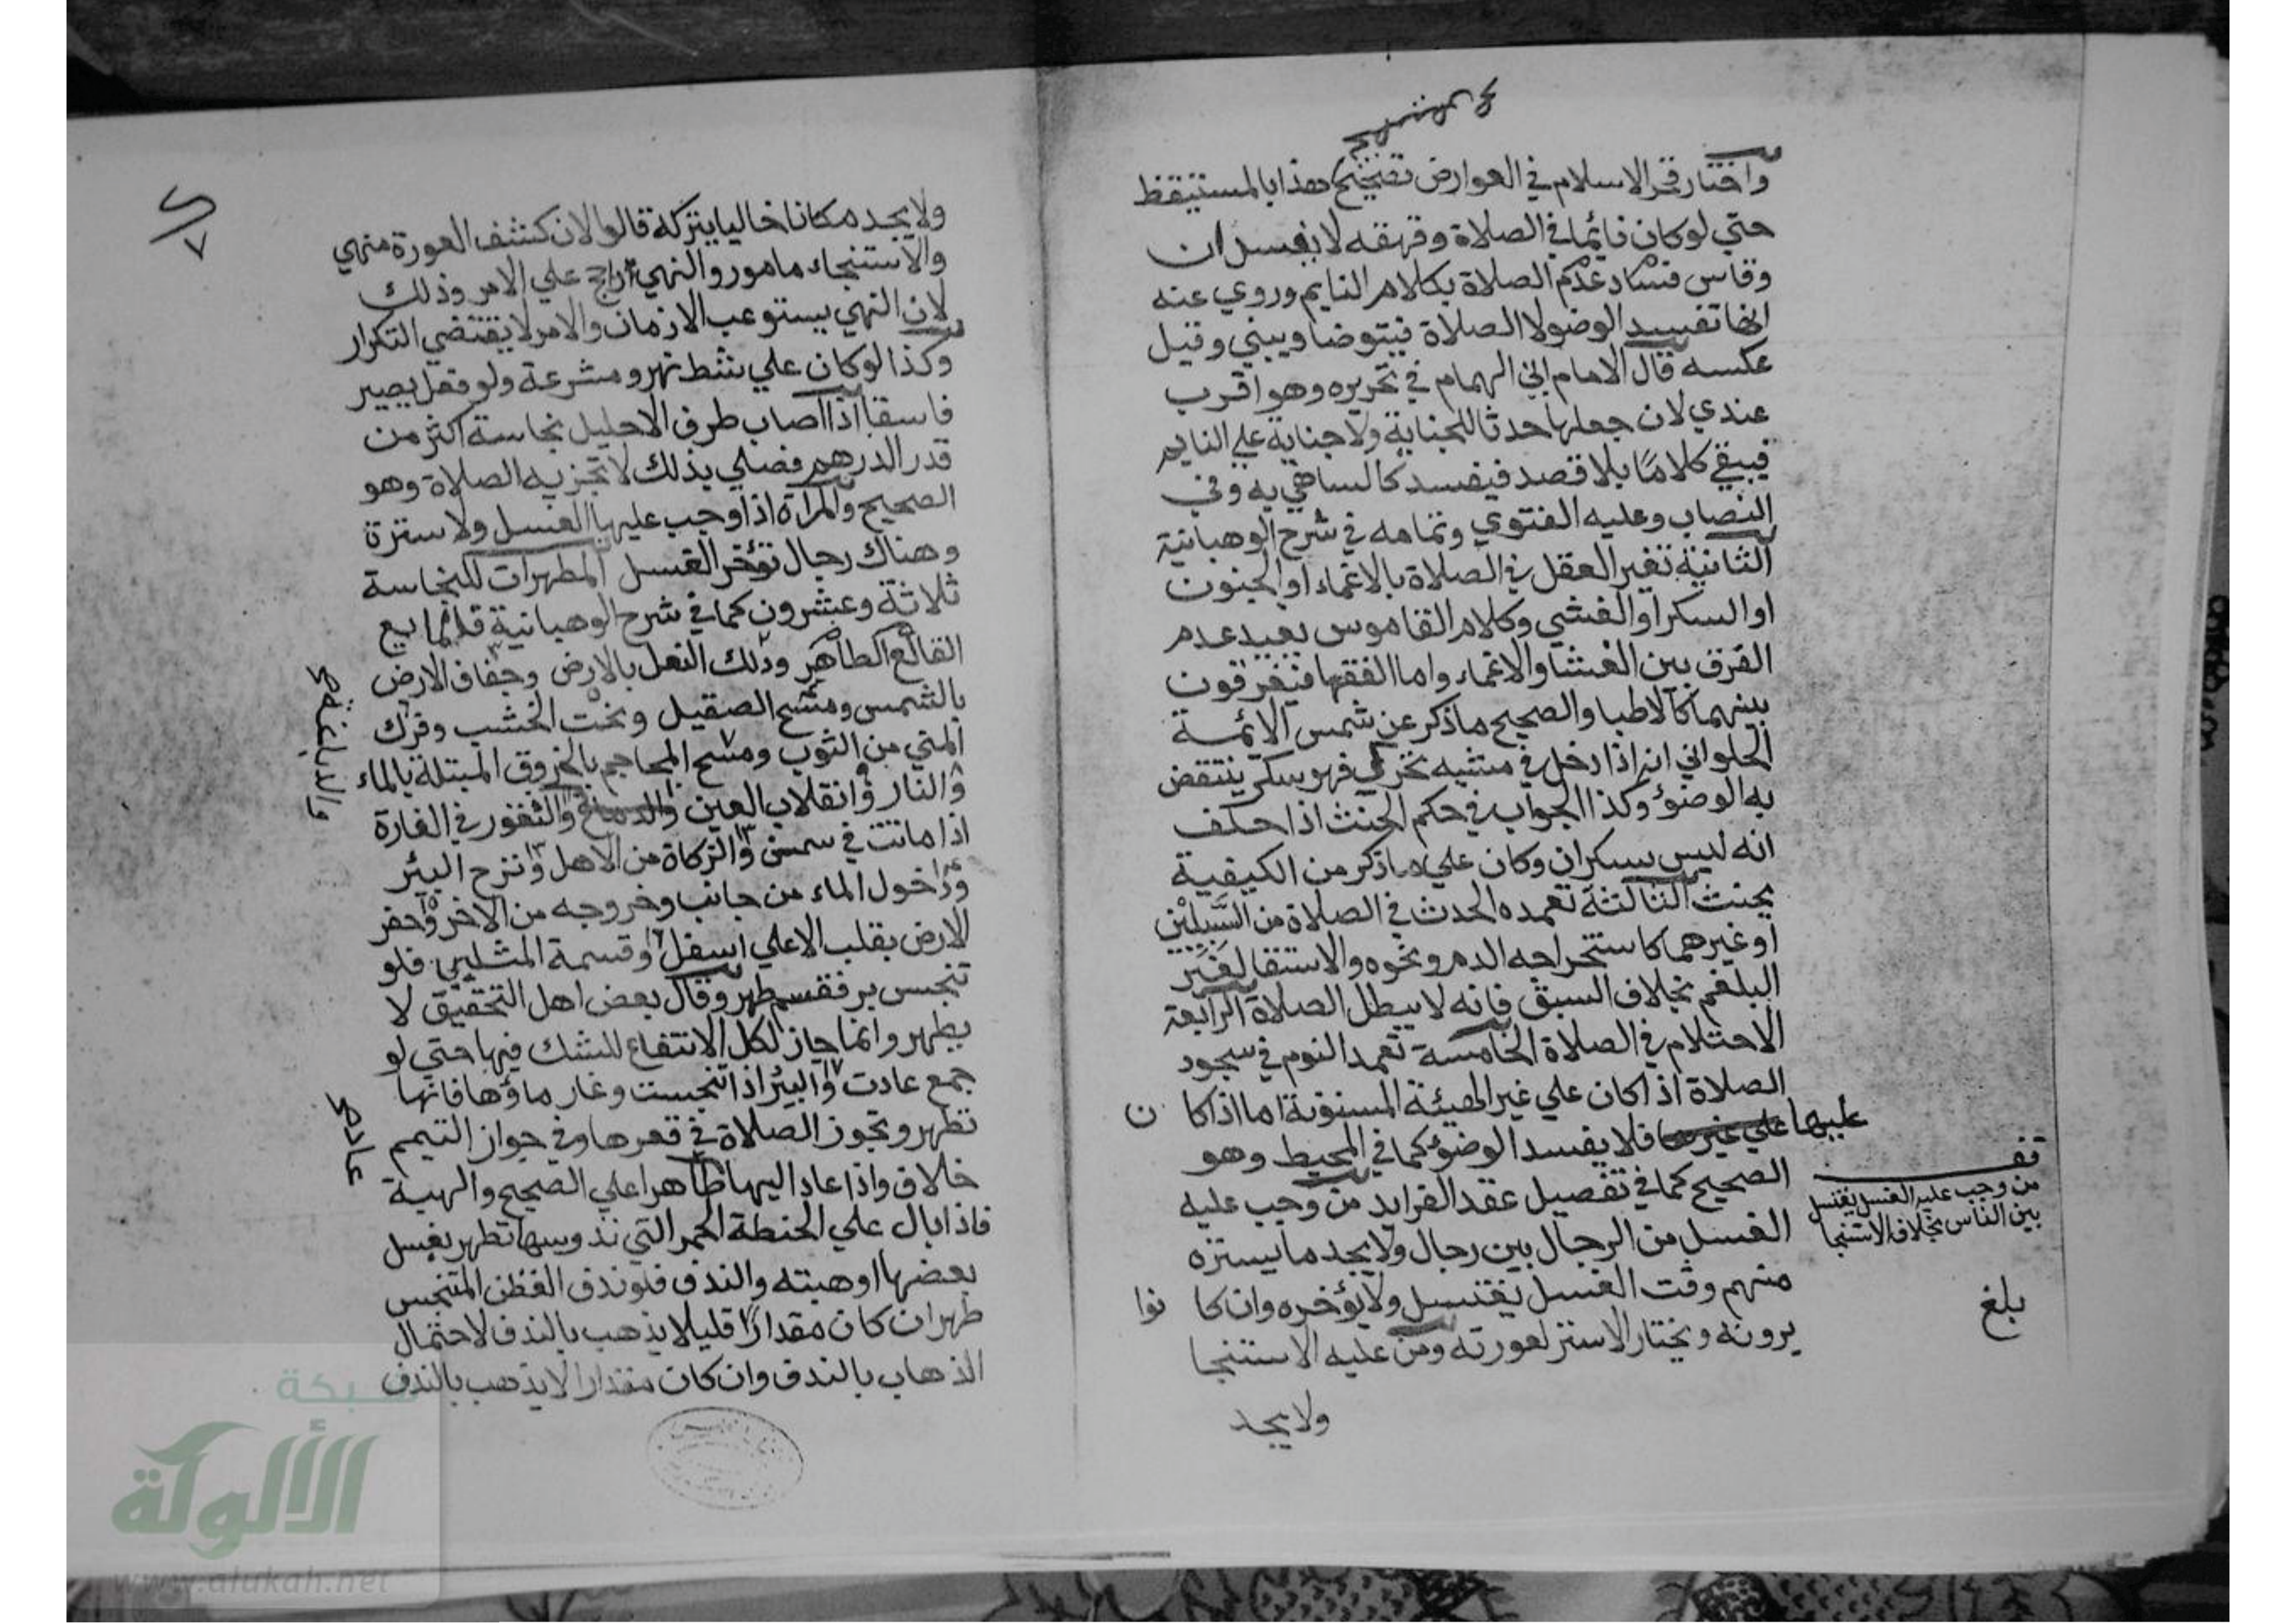 واختار فخر الاسلام في العوارض تصحيح هذا بالمستيقظ
حتي لو كان نائما في الصلاة وقهقه لا يفسد ان
وقاس فساد عدم الصلاة بكلام النايم وروي عنه
انها تفسد الوضو لا الصلاة فيتوضا ويبني وقيل
عكسه قال الامام ابن الهمام في تحريره وهو اقرب
عندي لان جعلها حدثا للجناية ولا جناية علي النايم
فيبقي كلامًا بلا قصد فيفسد كالساهي به وفي
النصاب وعليه الفتوي وتمامه في شرح الوهبانية
الثانية تغير العقل في الصلاة بالاغماء او الجنون
او السكر او الغشي وكلام القاموس يفيد عدم
الفرق بين الغشا والاغماء واما الفقها فيفرقون
بينهما كالاطبا والصحيح ما ذكر عن شمس الائمة
الحلواني انه اذا دخل في مشيه تحرك فهو سكر ينتقض
به الوضؤ وكذا الجواب في حكم الحنث اذا حلف
انه ليس بسكران وكان علي ما ذكر من الكيفية
يحنث الثالثة تعمده الحدث في الصلاة من السَّبيلَيْن
او غيرهما كاستخراجه الدم ونحوه والاستقا لغَير
البلغم بخلاف السبق فانه لا يبطل الصلاة الرابعة
الاحتلام في الصلاة الخامسة تعمد النوم في سجود
الصلاة اذا كان علي غير الهيئة المسنونة اما اذا كا ن
عليها علي غيرها فلا يفسد الوضؤ كما في المحيط وهو
الصحيح كما في تفصيل عقد الفرايد من وجب عليه
الغسل من الرجال بين رجال ولا يجد ما يستره
منهم وقت الغسل يغتسل ولا يؤخره وان كا نوا
يرونه ويختار الاستر لعورته ومن عليه الاستنجا
ولا يجد
قف
من وجب عليه الغسل يغتسل
بين الناس بخلاف الاستنجا
بلغ
٧
ولا يجد مكانا خاليا يتركه قالوا لان كشف العورة منهي
والاستنجاء مامور والنهي راجح علي الامر وذلك
لان النهي يستوعب الازمان والامر لا يقتضي التكرار
وكذا لو كان علي شط نهر ومشرعة ولو فعل يصير
فاسقا اذا اصاب طرف الاحليل نجاسة اكثر من
قدر الدرهم فصلي بذلك لا تجزيه الصلاة وهو
الصحيح والمراة اذا وجب عليها الغسل ولا سترة
وهناك رجال تؤخر الغسل المطهرات للنجاسة
ثلاثة وعشرون كما في شرح الوهبانية فالمايع
القالع الطاهر ودلك النعل بالارض وجفاف الارض
بالشمس ومسح الصقيل ونحت الخشب وفرك
المني من الثوب ومسح المحاجم بالخروق المبتلة بالماء
والنار وانقلاب العين والدماغ والتقور في الفارة
اذا ماتت في سمن والزكاة من الاهل ونزح البئر
ودخول الماء من جانب وخروجه من الاخر وحفر
الارض بقلب الاعلي اسفل وقسمة المثلي فلو
تنجس بر فقسم طهر وقال بعض اهل التحقيق لا
يطهر وانما جاز لكل الانتفاع للشك فيها حتي لو
جمع عادت والبئر اذا تنجست وغار ماؤها فانها
تطهر وتجوز الصلاة في قعرها وفي جواز التيمم
خلاف واذا عاد اليها طاهرا علي الصحيح والهبة
فاذا بال علي الحنطة الحمر التي تدوسها تطهر بغسل
بعضها او هبته والندف فلو ندف القطن المتنجس
طهر ان كان مقدارًا قليلا يذهب بالندف لاحتمال
الذهاب بالندف وان كان مقدارا لا يذهب بالندف
والدباغة صح
عاد صح
شبكة
الألوكة
www.alukah.net